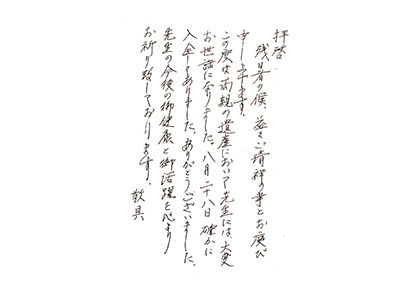 拝啓
残暑の候、益々ご清祥の事とお慶び
申し上げます。
この度は両親の遺産において先生には、大変
お世話に會りました。八月二十八日 確かに
入金してありました。ありがとうございました。
先生の今後の御健康と御活躍を心より
お祈り致しております。
敬具